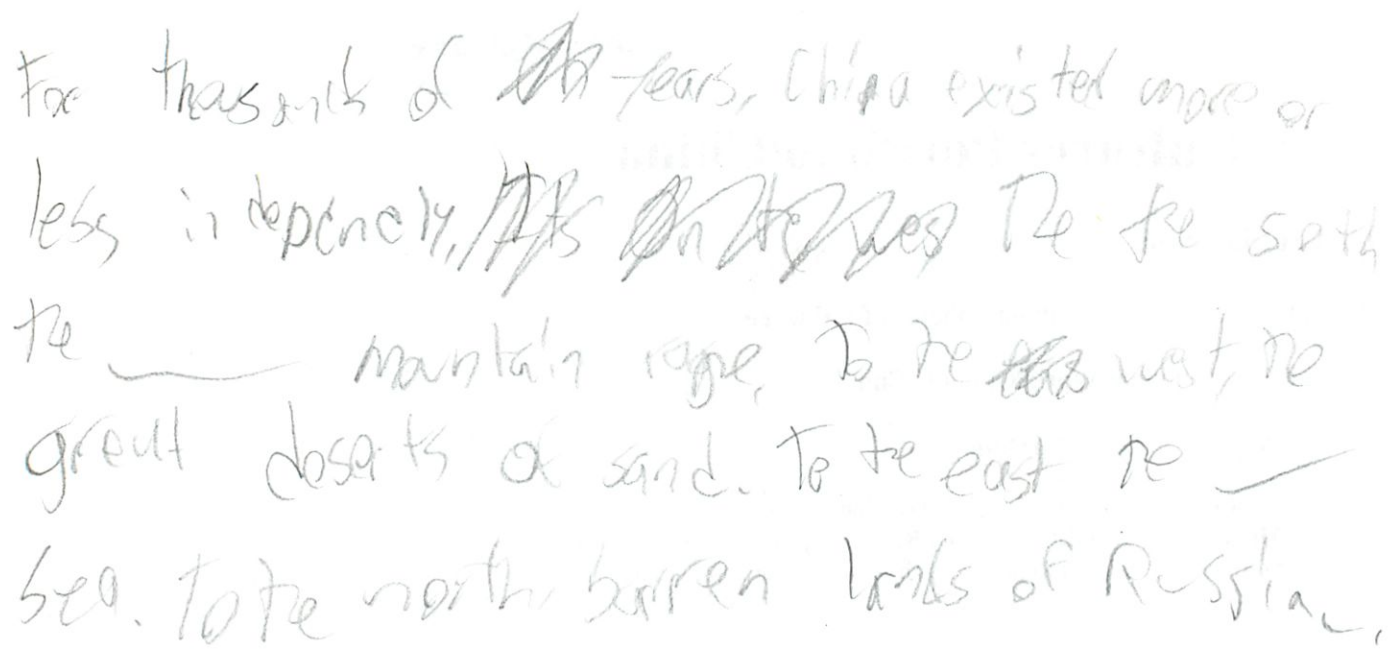 For thousands of years, China existed more or
less indepencely, The the south
the ____ mountain range. To the west, the
great deserts of sand. To the east the __
sea. To the north, barren lands of Russia.